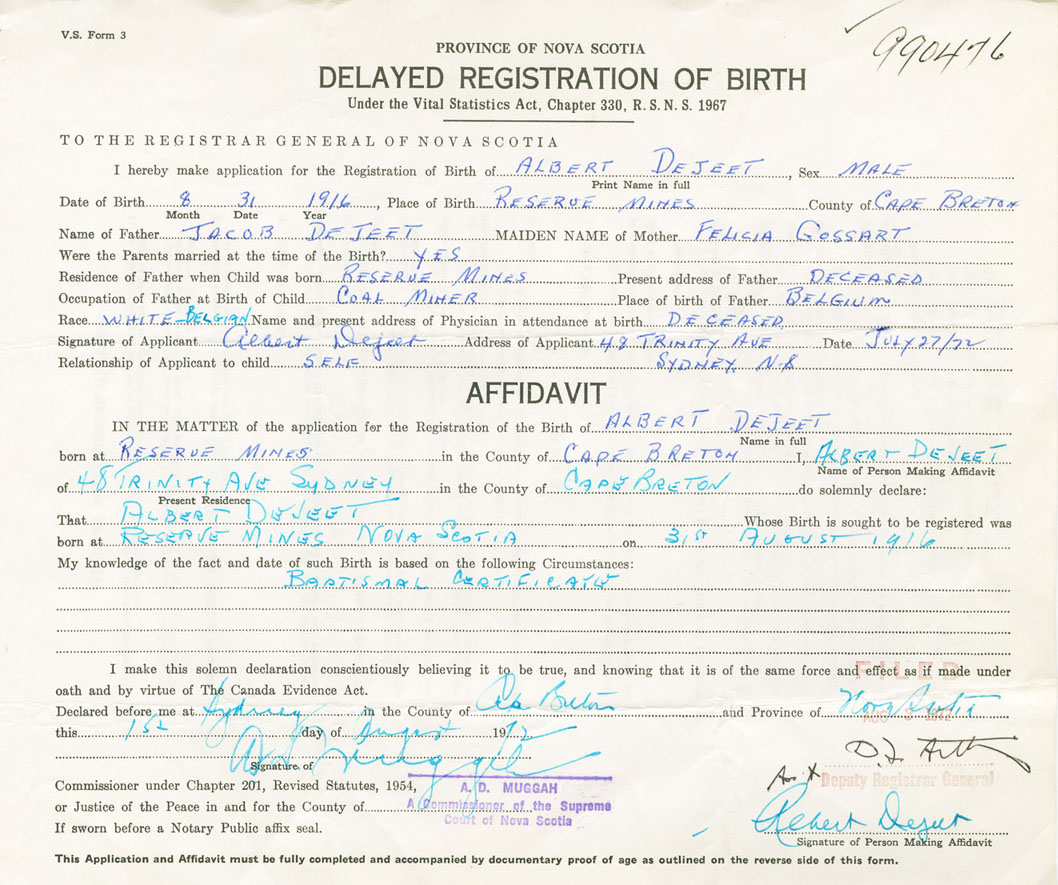 V.S. Form 3
990476
PROVINCE OF NOVA SCOTIA
DELAYED REGISTRATION OF BIRTH
Under the Vital Statistics Act, Chapter 330, R. S. N. S. 1967
TO THE REGISTRAR GENERAL OF NOVA SCOTIA
I hereby make application for the Registration of Birth of ALBERT DEJEET, Sex MALE
Print Name in full
Date of Birth 8 31 1916, Place of Birth RESERVE MINES County of CAPE BRETON
Month Date Year
Name of Father JACOB DEJEET MAIDEN NAME of Mother FELICIA GOSSART
Were the Parents married at the time of the Birth? YES
Residence of Father when Child was born RESERVE MINES Present address of Father DECEASED
Occupation of Father at Birth of Child COAL MINER Place of birth of Father BELGIUM
Race WHITE-BELGIAN Name and present address of Physician in attendance at birth DECEASED
Signature of Applicant Albert Dejeet Address of Applicant 48 TRINITY AVE Date JULY 27/72
Relationship of Applicant to child SELF SYDNEY, N.S
AFFIDAVIT
IN THE MATTER of the application for the Registration of the Birth of ALBERT DEJEET
Name in full
born at RESERVE MINES in the County of CAPE BRETON I, ALBERT DEJEET
Name of Person Making Affidavit
of 48 TRINITY AVE SYDNEY in the County of CAPE BRETON do solemnly declare:
Present Residence
That ALBERT DEJEET Whose Birth is sought to be registered was
born at RESERVE MINES NOVA SCOTIA on 31ST AUGUST 1916
My knowledge of the fact and date of such Birth is based on the following Circumstances:
BAPTISMAL CERTIFICATE
I make this solemn declaration conscientiously believing it to be true, and knowing that it is of the same force and effect as if made under
FILED
oath and by virtue of The Canada Evidence Act.
Declared before me at Sydney in the County of Cape Breton and Province of Nova Scotia
this 1st day of August 1972
Signature of
Deputy Registrar General
Commissioner under Chapter 201, Revised Statutes, 1954, A. D. MUGGAH
or Justice of the Peace in and for the County of A Commissioner of the Supreme
Court of Nova Scotia
Albert Dejeet
If sworn before a Notary Public affix seal.
Signature of Person Making Affidavit
This Application and Affidavit must be fully completed and accompanied by documentary proof of age as outlined on the reverse side of this form.